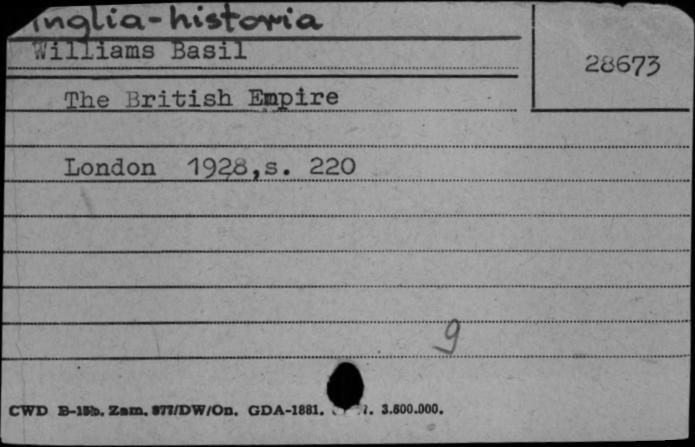 Anglia-historia
Williams Basil
28673
The British Empire
London 1928,s. 220
9
CWD B-15b. Zam. 877/DW/On. GDA-1881. 3.800.000.